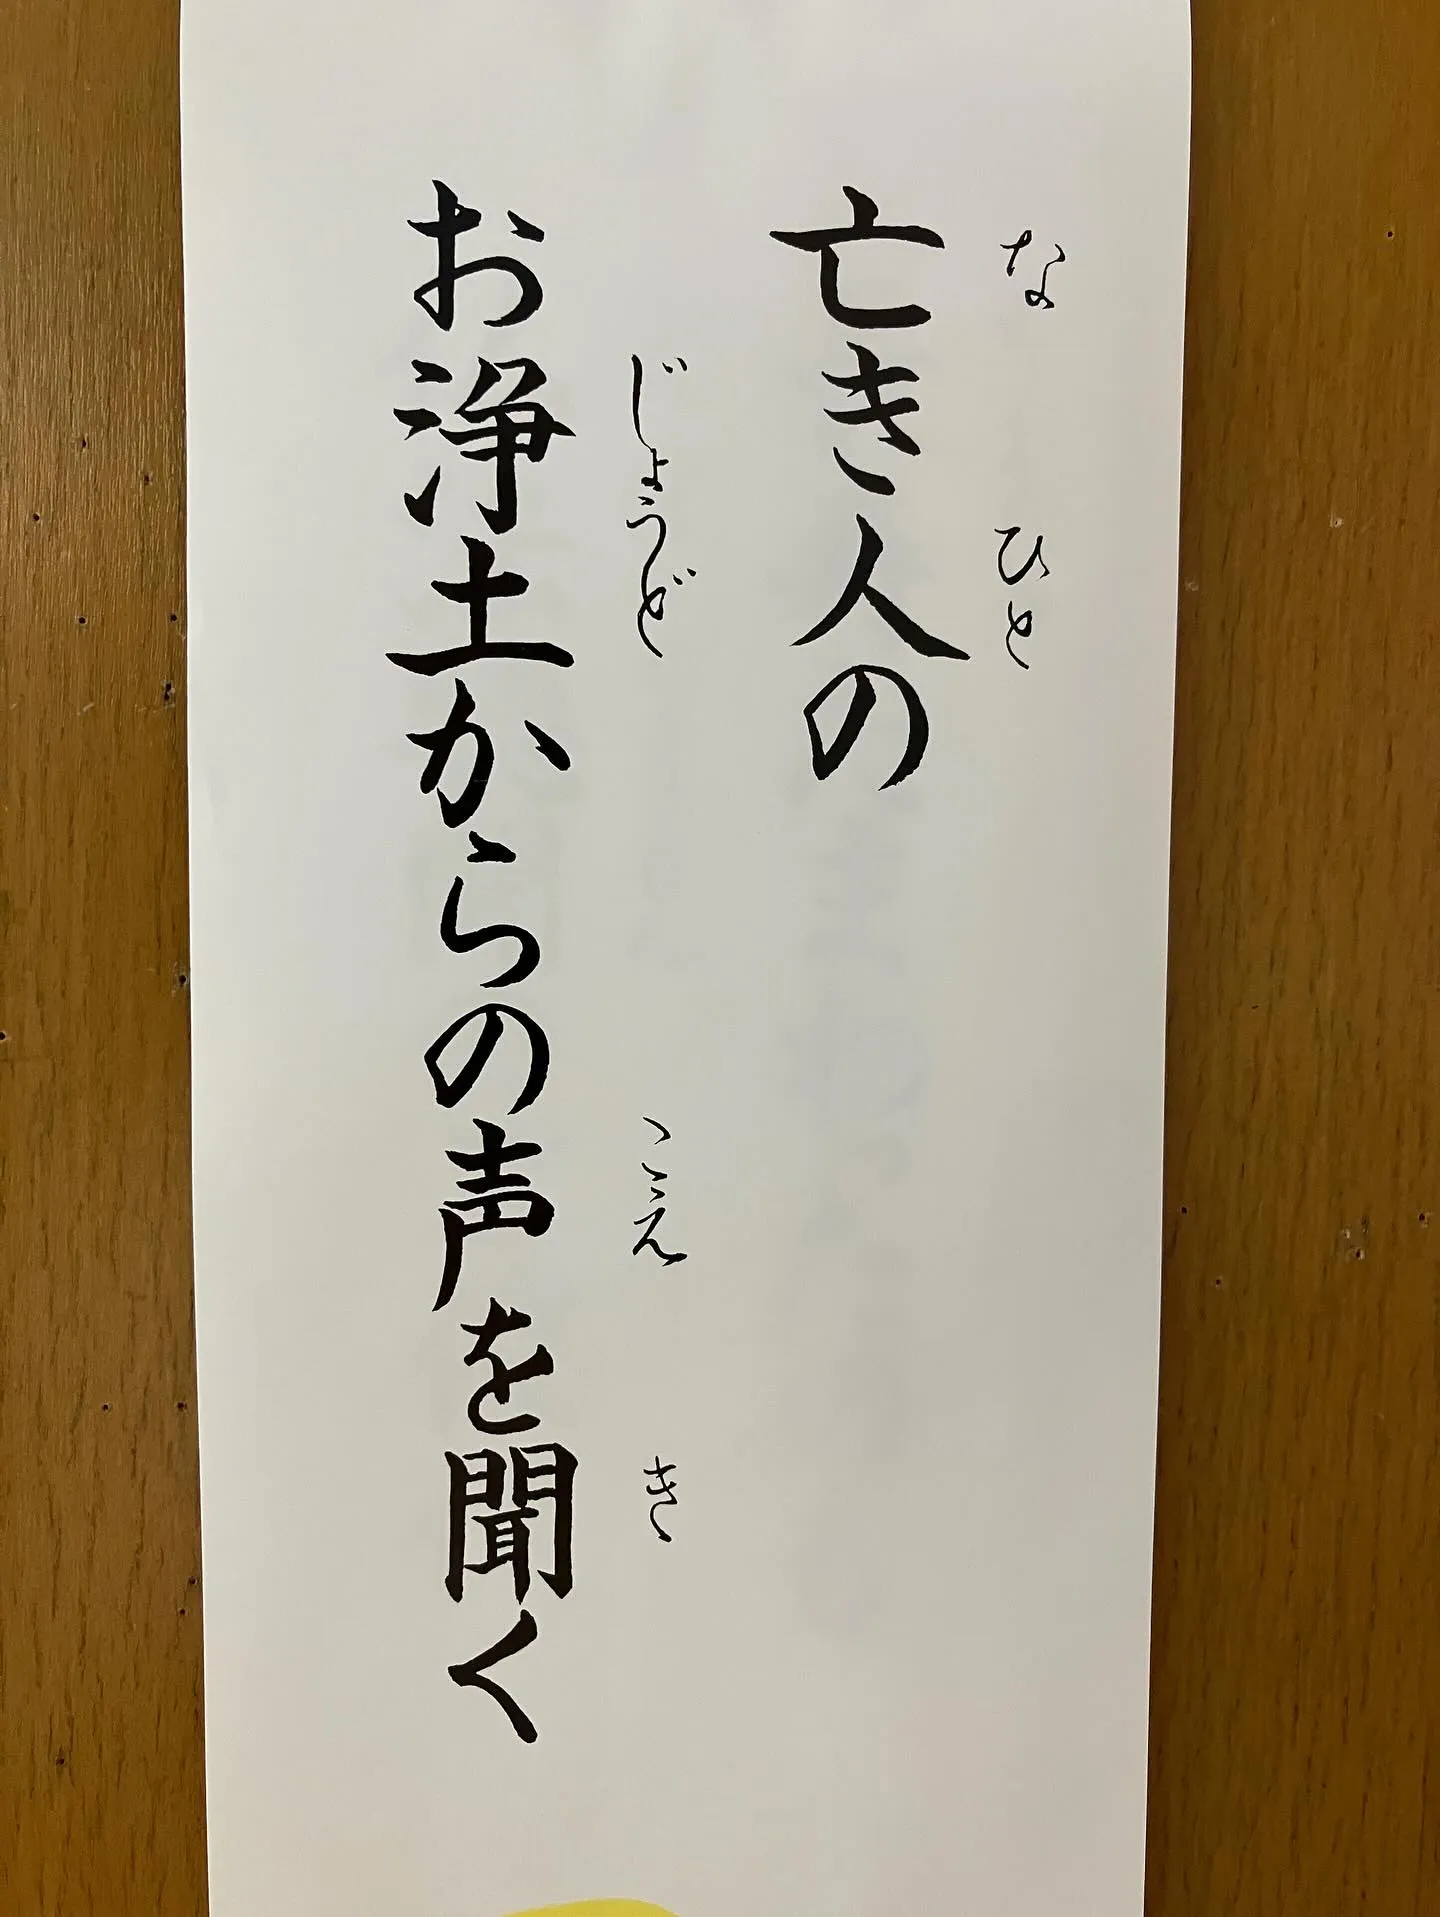 亡き人の
なひと
お浄土からの声を聞く
じょうどこえき